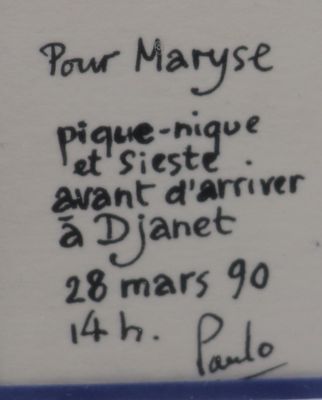 Pour Maryse
pique-nique
et sieste.
avant d'arriver
à Djanet
28 mars 90
14 h.
Paulo